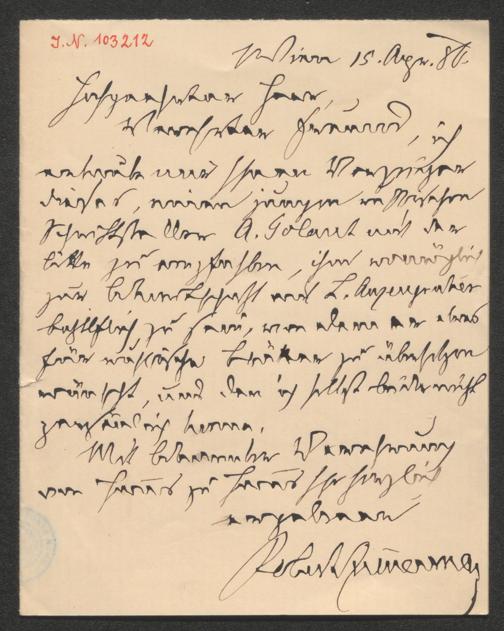 J. N. 103212
Wien 15. Apr. 86.
Hochgeehrter Herr,
Verehrter Freund, ich
erlaube mir Ihnen Vorzeiger
dieses, einen jungen russischen
Schriftsteller A. Golant mit der
Bitte zu empfehlen, ihm womöglich
zur Bekanntschaft mit L. Anzengruber
behilflich zu sein, von dem er etwas
für russische Blätter zu übersetzen
wünscht, und den ich selbst leider nicht
persönlich kenne.
Mit bekannter Verehrung
von Haus zu Haus Ihr herzlich
ergebener
Robert Zimmermann